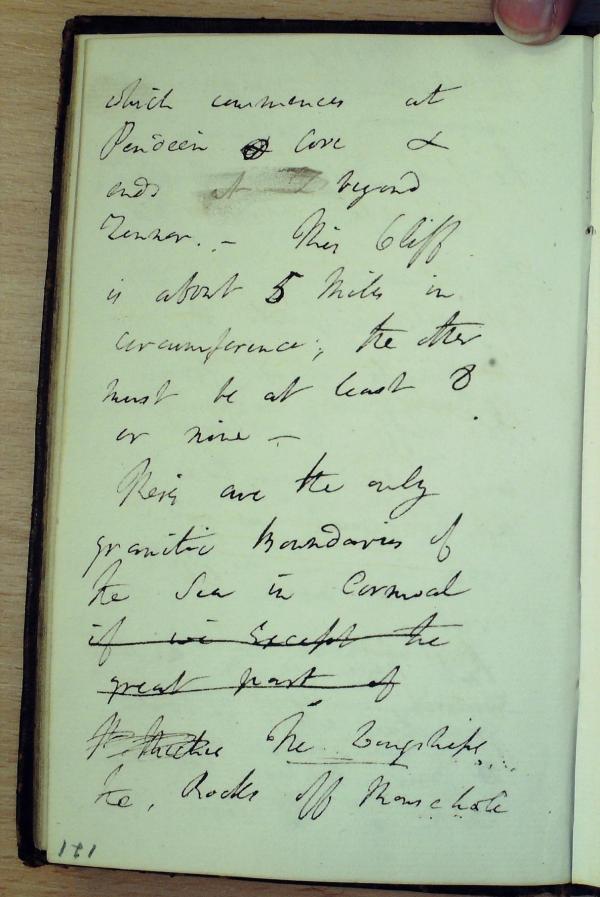 which commences at
Pendeen Cove &
ends at beyond
Zennor. – This Cliff
is about 5 Miles in
circumference; the other
must be at least 8
or nine –
These are the only
granitic Boundaries of
the Sea in Cornwal
if we Except the
great part of
The Longships
the, Rocks off Mousehole
121